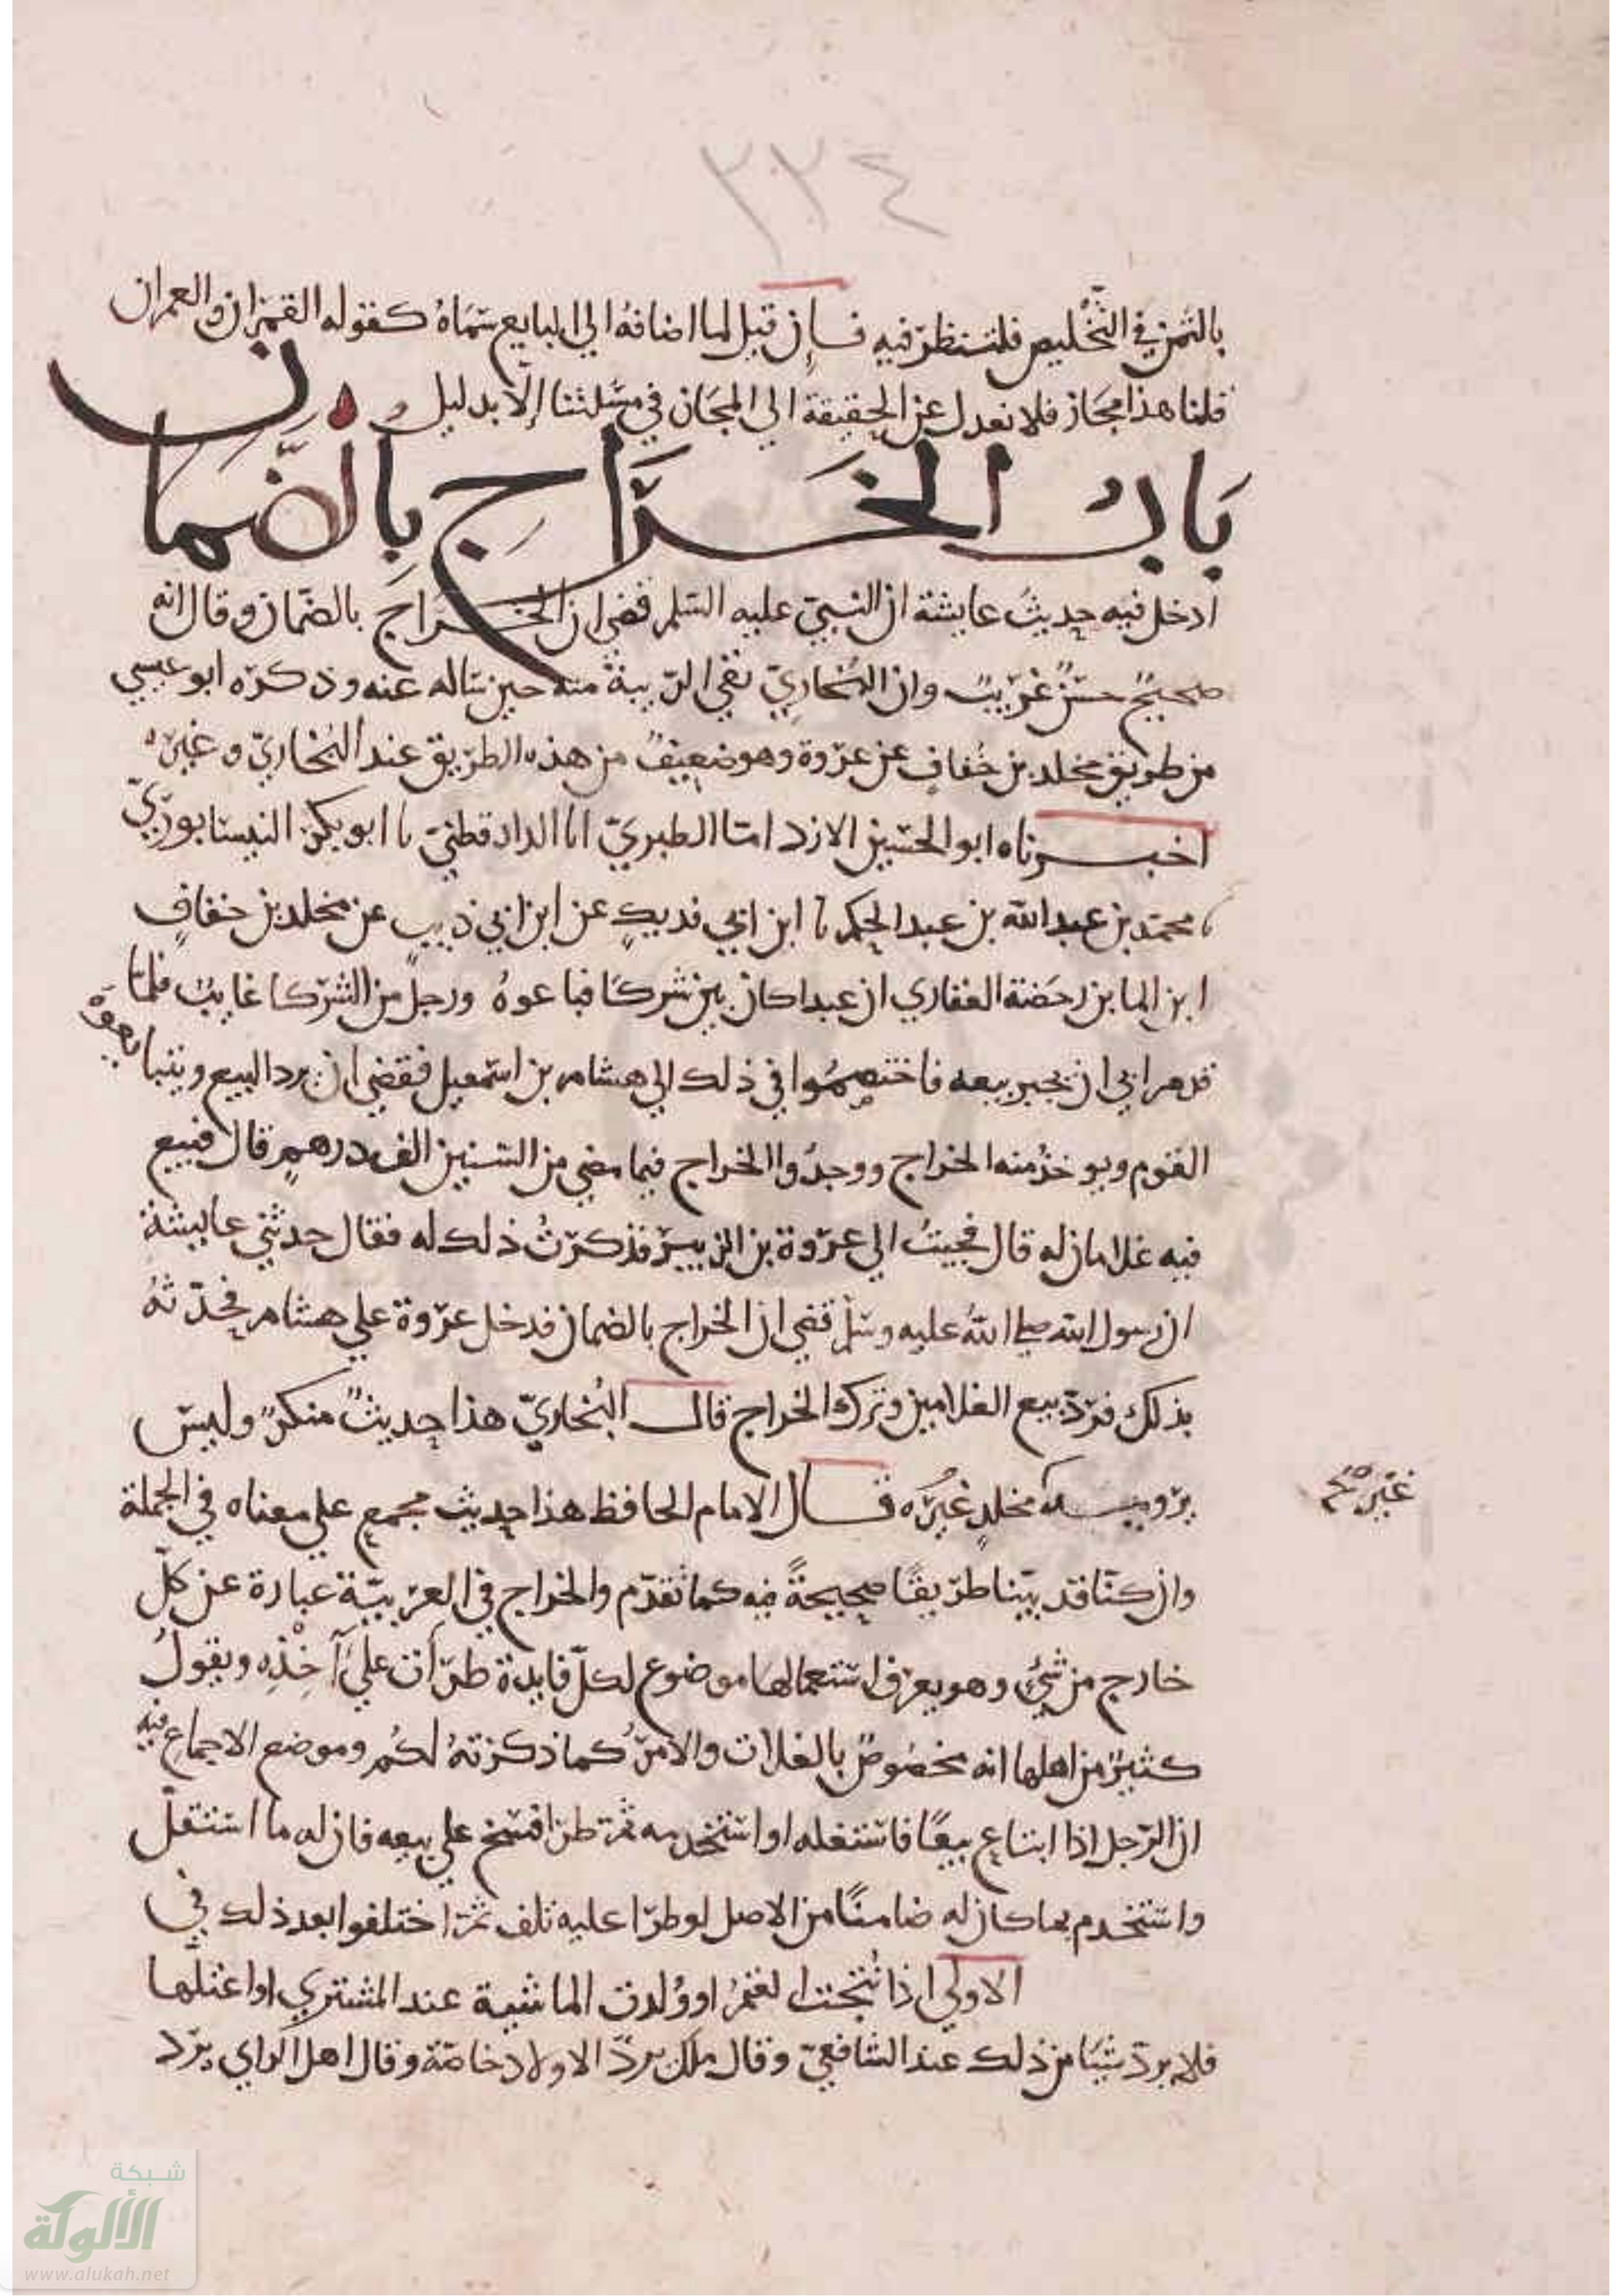 ٢٢٤
بالثمن في التخليص فلتنظر فيه فإن قيل لما اضافه الي البايع سماه كقوله القمران والعمران
قلنا هذا مجاز فلا نعدل عن الحقيقة الي المجاز في مسئلتنا إلا بدليل
بَابُ الخَرَاج بِالضَّمان
ادخل فيه حديث عايشة ان النبي عليه السلم قضي ان الخراج بالضمان وقال انه
صحيح حسن غريب وان البخاري نفي الريبة منه حين ساله عنه وذكره ابو عيسي
من طريق مخلد بن خفاف عن عروة وهو ضعيف من هذه الطريق عند البخاري وغيره
اخبرناه ابو الحسين الازدي انا الطبري انا الدارقطني نا ابو بكر النيسابوري
نا محمد بن عبد الله بن عبد الحكم نا ابن ابي فديك عن ابن ابي ذيب عن مخلد بن خفاف
ابن ايما بن رحضة الغفاري ان عبدا كان بين شركا فباعوه ورجل من الشركا غايب فلما
قدم ابي ان يجيز بيعه فاختصموا في ذلك الي هشام بن اسمعيل فقضي ان يرد البيع ويتبايعوه
القوم ويوخذ منه الخراج ووجدوا الخراج فيما مضي من السنين الف درهم قال فبيع
فيه غلامان له قال فجيت الي عروة بن الزبير فذكرت ذلك له فقال حدثتني عايشة
ان رسول الله صلي الله عليه وسلم قضي ان الخراج بالضمان فدخل عروة علي هشام فحدثه
بذلك فرد بيع الغلامين وترك الخراج قال البخاري هذا حديث منكر وليس
يرويه مخلد غيره قال الامام الحافظ هذا حديث مجمع علي معناه في الجملة
غير
وان كنا قد بينا طريقا صحيحة فيه كما تقدم والخراج في العربية عبارة عن كل
خارج من شيء وهو يعرف استعمالها موضوع لكل فايدة طرأت علي آخذه ويقول
كثير من اهلها انه مخصوص بالغلات والامر كما ذكرته لكم وموضع الاجماع فيه
ان الرجل اذا ابتاع بيعا فاستغله او استخدمه ثم طرا فسخ علي بيعه فان له ما استغل
واستخدم بما كان له ضامنا من الاصل لو طرا عليه تلف ثم اختلفوا بعد ذلك في
الاولي اذا نتجت الغنم او ولدت الماشية عند المشتري او اغتلها
فلا يرد شيا من ذلك عند الشافعي وقال ملك يرد الاولاد خاصة وقال اهل الراي يرد
شبكة
الألوكة
www.alukah.net